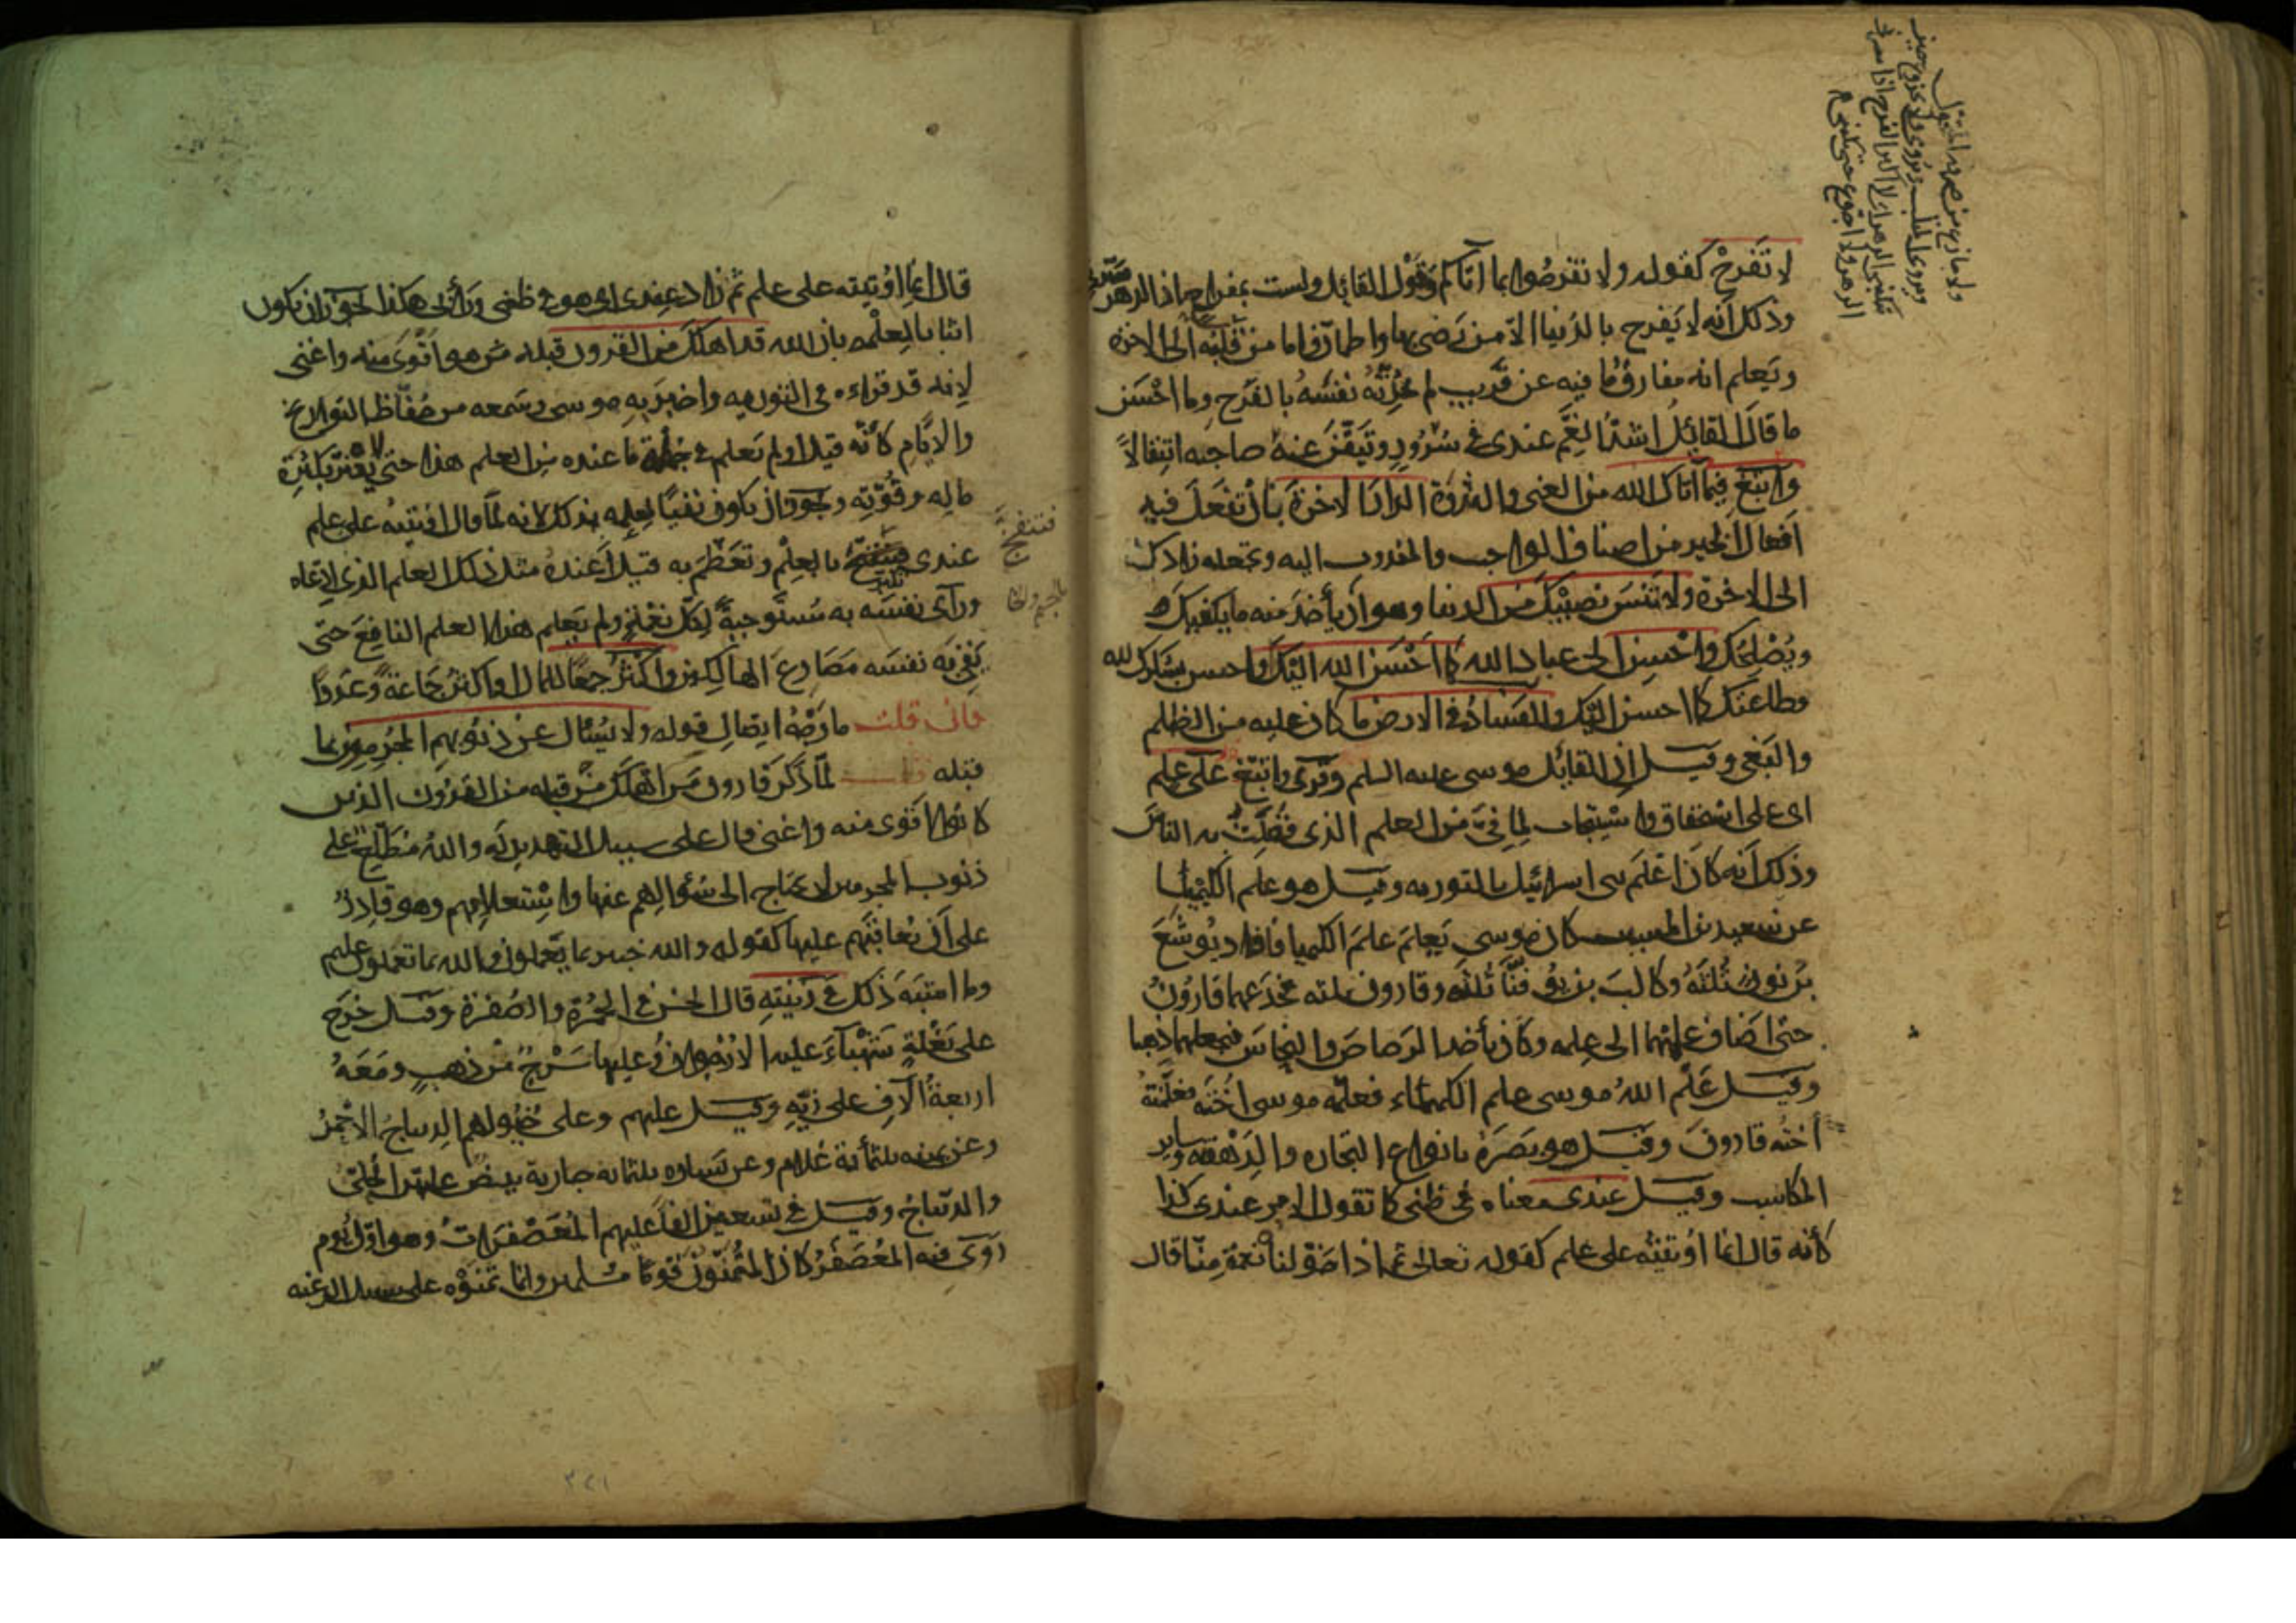 لا تَفْرَحْ كقوله ولا تفرحوا بما آتاكم وقول القائل ولست بمفراح اذا الدهر سرّني
وذلك أنه لا يفرح بالدنيا الا من رَضي بها واطمأنّ واما من قلبه الى الاخرة
ويَعلم انه مفارق ما فيه عن قريب لم تحدّثه نفسُه بالفرح وما احْسَن
ما قال القائل اشدّ الغمّ عندي في سُرورٍ تيقّن عنه صاحبه انتقالاً
وابتغ فيما آتاك الله من الغنى والثروة الدار الاخرة بأن تفعل فيه
افعال الخير من اصناف الواجب والمندوب اليه وتجعله زادك
الى الاخرة ولا تنس نصيبك من الدنيا وهو ان يأخذ منه ما يكفيك
ويُصْلِحُك واحْسِن الى عباد الله كما احْسَن الله اليك واحسن بشكرك لله
وطاعتك كما احسن اليك والفساد في الارض ما كان عليه من الظلم
والبَغي وقيل إن القائل موسى عليه السلم وقرئ واتبع على علم
اى على استحقاق واستيجاب لما فيّ من العلم الذي فضّلتُ به الناسَ
وذلك أنه كان اعلم بنى اسرائيل بالتورية وقيل هو علم الكيمياء
عن سعيد بن المسيب كان موسى يَعلم علمَ الكيميا فافاد يوشع
بن نون ثلثه وكالب بن يوفنّا ثلثه وقارون ثلثه فخدعهما قارونُ
حتى اضاف علمهما الى علمه وكان يأخذ الرصاص والنحاس فيجعلهما ذهبا
وقيل علّم اللهُ موسى علم الكيمياء فعلّمه موسى اختَه فعلّمتْهُ
أختُه قارونَ وقيل هو بَصَرهُ بانواع التجاره والدَّهْقَنه وساير
المكاسب وقيل عندى معناه في ظنى كما تقول الامر عندى كذا
كأنه قال انما اوتيتُه على علم كقوله تعالى ثم اذا خوّلناه نعمة منّا قال
قال انما اوُتيته على علم ثم زاد عندى اى هو في ظنى ورأيى هكذا يجوز ان يكون
اثباتا لعلمه بان الله قد اهلك من القرون قبله من هو اقوى منه واغنى
لانه قد قراءه في التورية واخبر به موسى وسمعه من حُفّاظ التواريخ
والايّام كأنّه قيل اولم يَعلم في جملة ما عنده من العلم هذا حتى لا يغترّ بكثرة
ماله وقُوّته ويجوز ان يكون نفيًا لعلمه بذلك لانه لمّا قال اوتيتُه على علم
عندى فتنفّج بالعِلْم وتعظّم به قيل أعندهُ مثل ذلك العلم الذي ادّعاه
ورأى نفسَه به مُستوجبةً لكلّ نعمةٍ ولم يَعلم هذا العلم النافع حتى
يَقِىَ به نفسَه مَصَارِعَ الهالكين واكثرُ جمعًا للمال او اكثر جماعةً وعددًا
فان قلت ما وَجْهُ اتصال قوله ولا يُسْئَال عن ذنوبهم المجرمون بما
قبله قلت لمّا ذكر قارون مَن اهلك من قبله من القرون الذين
كانوا اقوى منه واغنى قال على سبيل التهديد له والله مُطّلِعٌ على
ذنوب المجرمين لا يحتاج الى سُؤالهم عنها واسْتعلامهم وهو قادرٌ
على أن يُعاقبهم عليها كقوله والله خبير بما يعملون والله بما تعملون عليم
وما اشبه ذلك في زينته قال الحسن في الحُمْرة والصُفرة وقيل خرج
على بَغْلةٍ شَهْباءَ عليه الارْجُوان وعليها سَرْجٌ من ذهب ومَعَهُ
اربعةُ آلافٍ على زيّه وقيل عليهم وعلى خُيُولهم الديباج الاحمرُ
وعن يمينه ثلثمأئة غلام وعن يساره ثلثمائه جارية بيضٌ عليهن الحُلِيّ
والديباج وقيل في تسعين الفا عليهم المُعَصْفَرات وهو اوّل يوم
رُوى فيه المُعَصْفَر كان المُتَمَنّون قومًا مسلمين وانما تمنّوْه على سبيل الرغبه